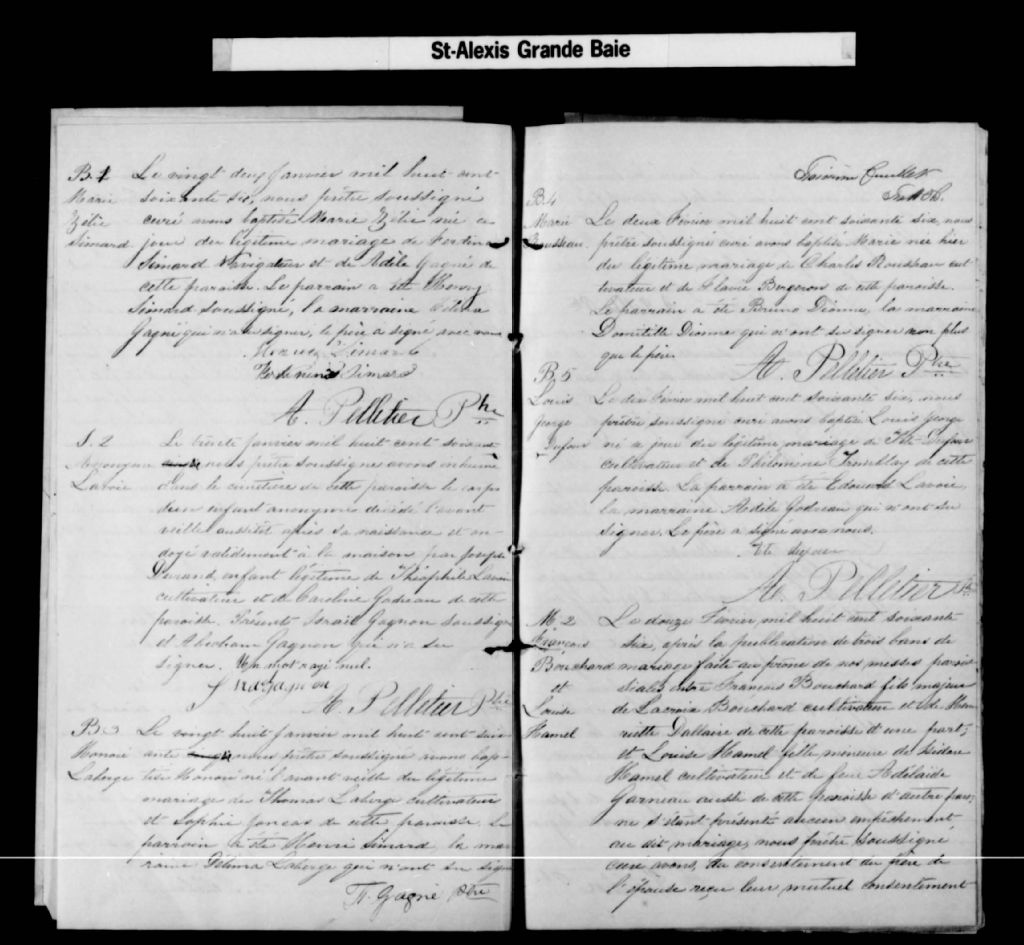 St-Alexis Grande Baie
B. 1
Marie
Zélie
Simard
Le vingt deux Janvier mil huit cent
soixante six, nous prêtre soussigné
curé avons baptisé Marie Zélie née ce
jour du légitime mariage de Ferdinand
Simard Navigateur et de Adèle Gagné de
cette paroisse. Le parrain a été Henry
Simard soussigné, la marraine
Gagné qui n'a su signer, le père a signé avec nous
Simard
Ferdinand Simard
A. Pelletier Ptre
S. 2
Anonyme
Lavoie
Le trente Janvier mil huit cent soixante
nous prêtre soussigné avons inhumé
dans le cimetière de cette paroisse le corps
d'un enfant anonyme décédé l'avant
veille aussitôt après sa naissance et on-
doyé validement à la maison par Joseph
Durand, enfant légitime de Théophile Lavoie
cultivateur et de Caroline Godreau de cette
paroisse. Présents Israël Gagnon soussigné
et Abraham Gagnon qui n'a su
signer. Un mot rayé nul.
A. Pelletier Ptre
B. 3
Honoré
Laberge
Le vingt huit Janvier mil huit cent soix-
ante nous prêtre soussigné avons bap-
tisé Honoré né l'avant veille du légitime
mariage de Thomas Laberge cultivateur
et Sophie Joncas de cette paroisse. Le
parrain a été Henri Simard, la mar-
raine Délima Laberge qui n'ont su signer
Gagné Ptre
B. 4
Marie
Rousseau
Le deux Février mil huit cent soixante six, nous
prêtre soussigné curé avons baptisé Marie née hier
du légitime mariage de Charles Rousseau cul-
tivateur et de Flavie Bergeron de cette paroisse.
Le parrain a été Bruno Dionne, la marraine
Domitille Dionne qui n'ont su signer non plus
que le père.
A. Pelletier Ptre
B. 5
Louis
George
Dufour
Le dix Février mil huit cent soixante six, nous
prêtre soussigné curé avons baptisé Louis George
né ce jour du légitime mariage de Dufour
cultivateur et de Philomène Tremblay de cette
paroisse. Le parrain a été Edouard Lavoie,
la marraine Adèle Godreau qui n'ont su
signer. Le père a signé avec nous.
A. Pelletier Ptre
M. 2
François
Bouchard
et
Louise
Hamel
Le douze Février mil huit cent soixante
six, après la publication de trois bans de
mariage faite au prône de nos messes parois-
siales entre François Bouchard fils majeur
de Lacroix Bouchard cultivateur et de Hen-
riette Dallaire de cette paroisse d'une part;
et Louise Hamel fille mineure de Isidore
Hamel cultivateur et de feue Adélaide
Garneau aussi de cette paroisse d'autre part;
ne s'étant présenté aucun empêchement
au dit mariage, nous prêtre soussigné
curé avons, du consentement du père de
l'épouse reçu leur mutuel consentement